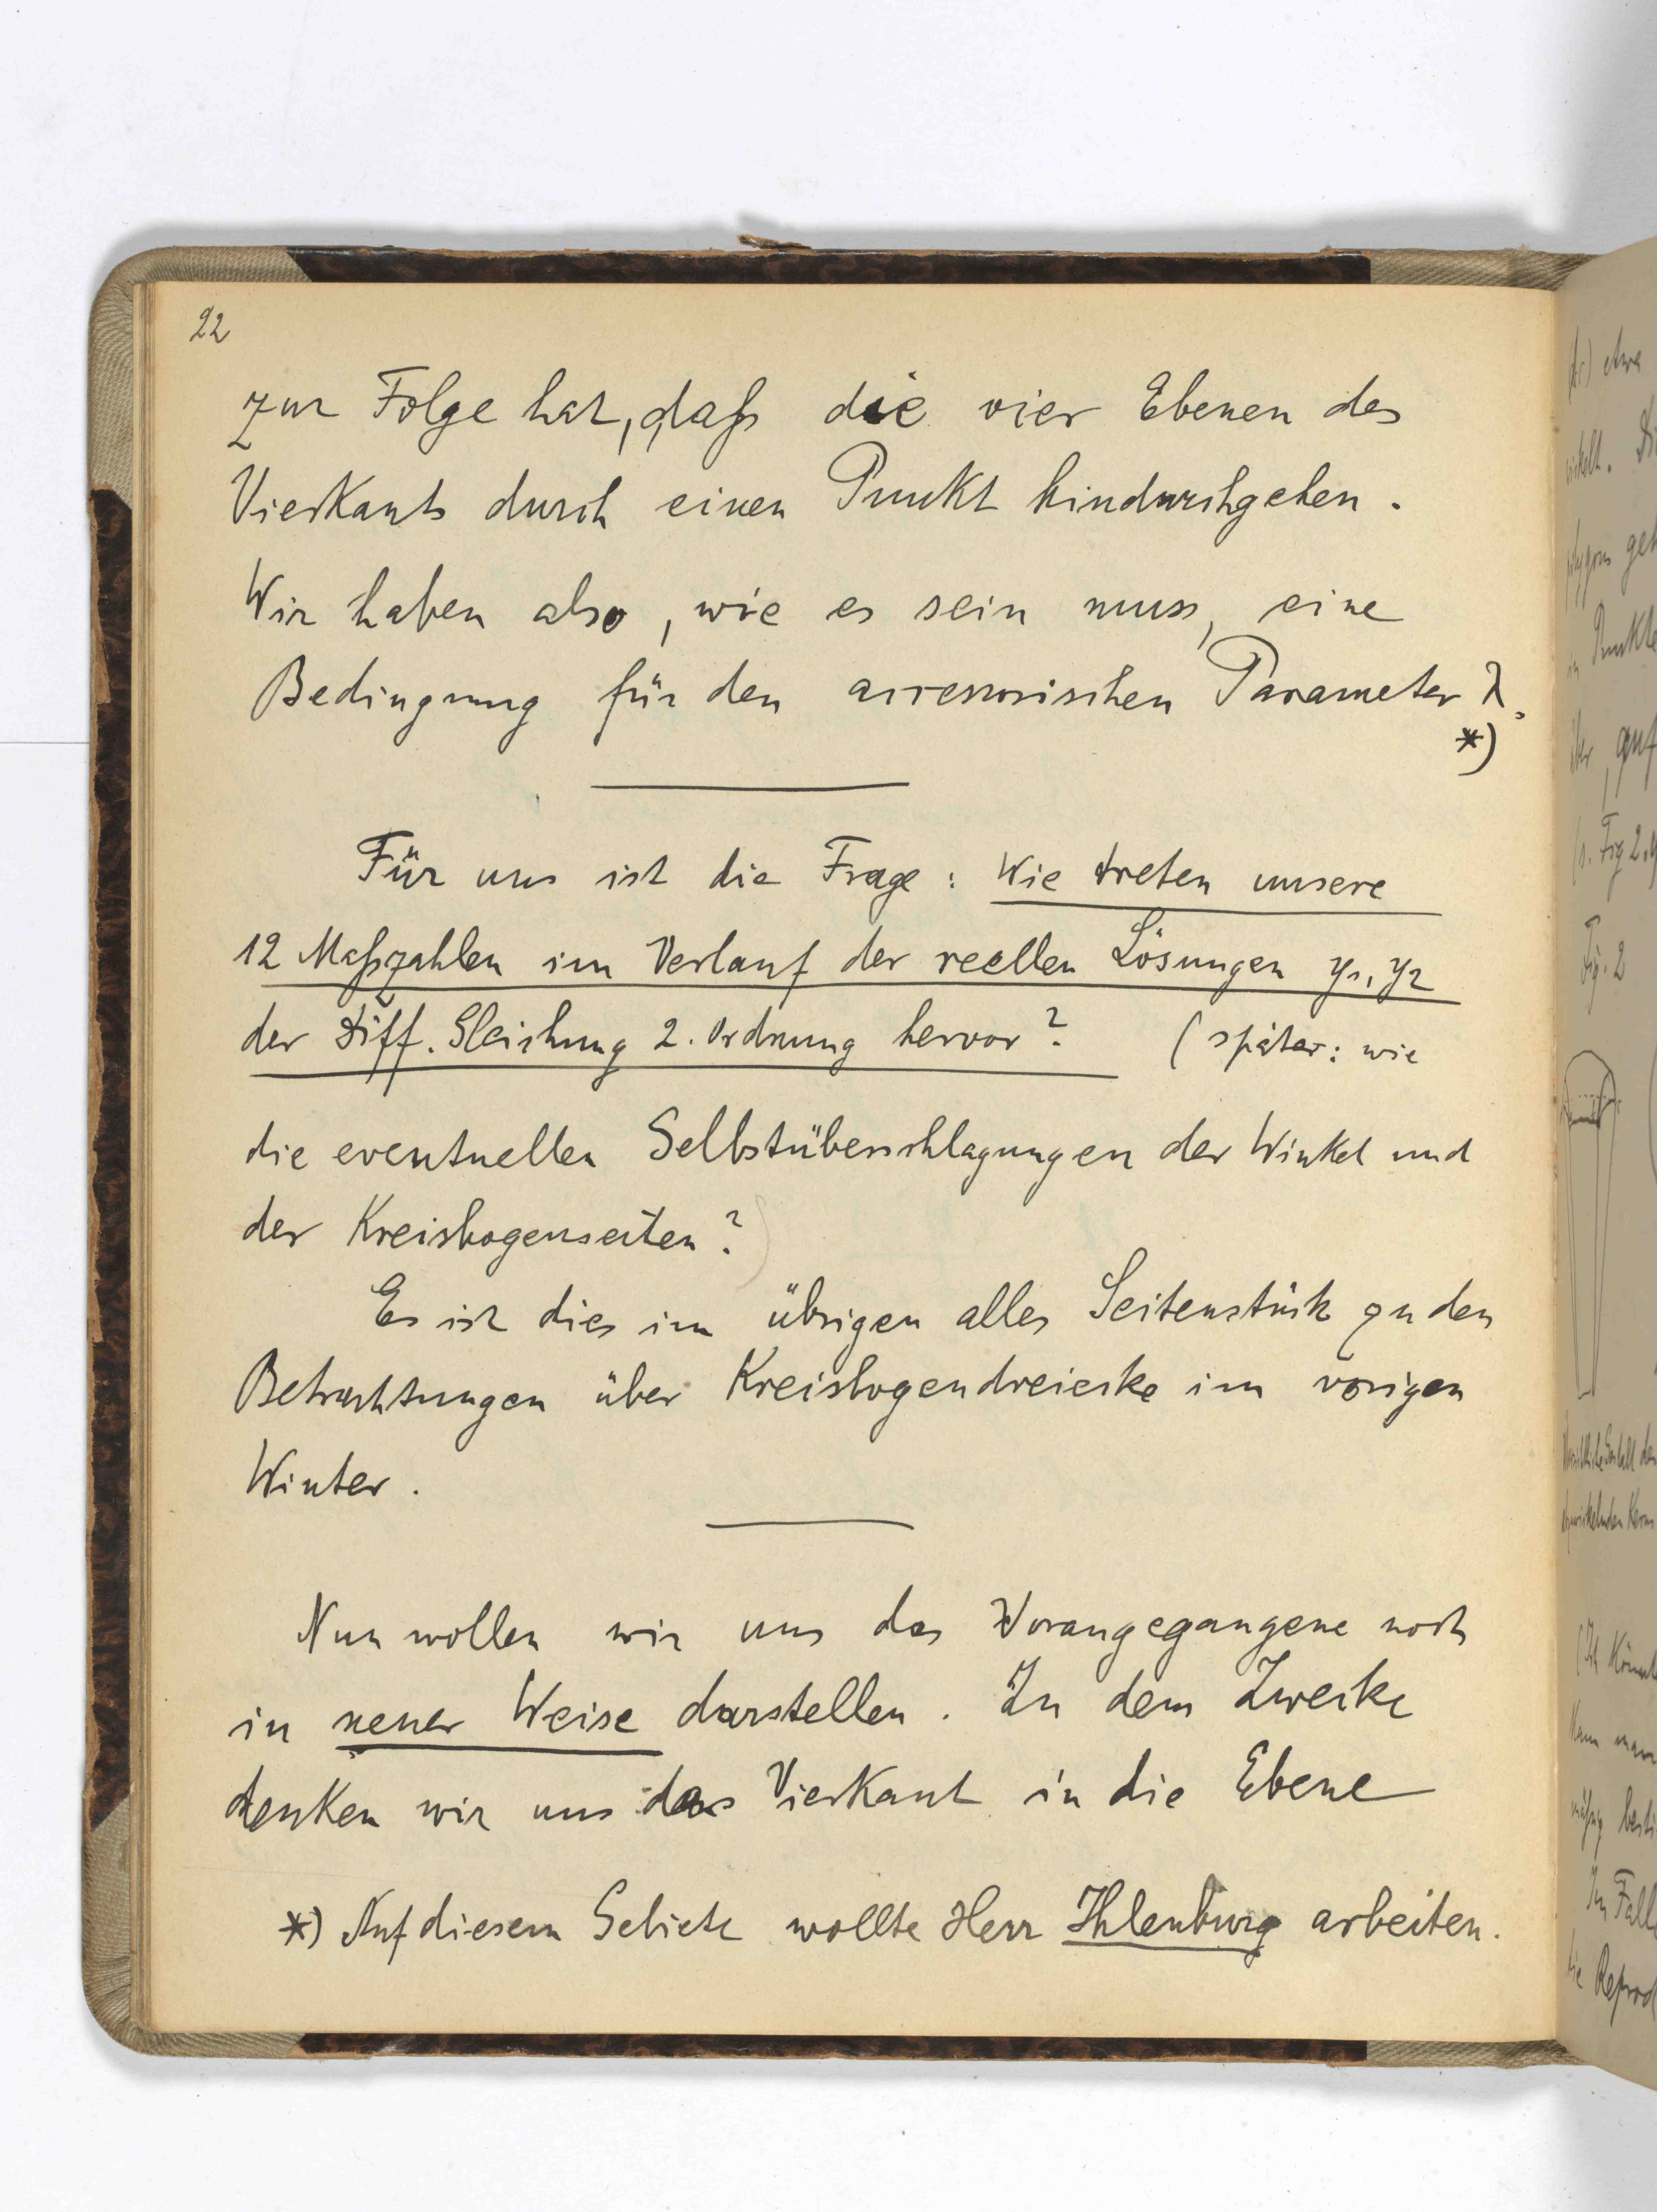 22
zur Folge hat, daß die vier Ebenen des
Vierkants durch einen Punkt hindurchgehen.
Wir haben also, wie es sein muss, eine
Bedingung für den accessorischen Parameter λ.
*)
Für uns ist die Frage: Wie treten unsere
12 Maßzahlen im Verlauf der reellen Lösungen y₁, y₂
der Diff. Gleichung 2. Ordnung hervor? (später: wie
die eventuellen Selbstüberschlagungen der Winkel und
der Kreisbogenseiten?)
Es ist dies im übrigen alles Seitenstück zu den
Betrachtungen über Kreisbogendreiecke im vorigen
Winter.
Nun wollen wir uns das Vorangegangene noch
in neuer Weise darstellen. Zu dem Zwecke
denken wir uns das Vierkant in die Ebene
*) Auf diesem Gebiete wollte Herr Ihlenburg arbeiten.
etwa
Punkte
auf
(s. Fig 2
Fig. 2
Kann man
Im Fall
die